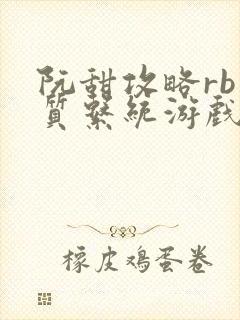 阮甜攻略rb
質繫統游戲
橡皮鸡蛋卷